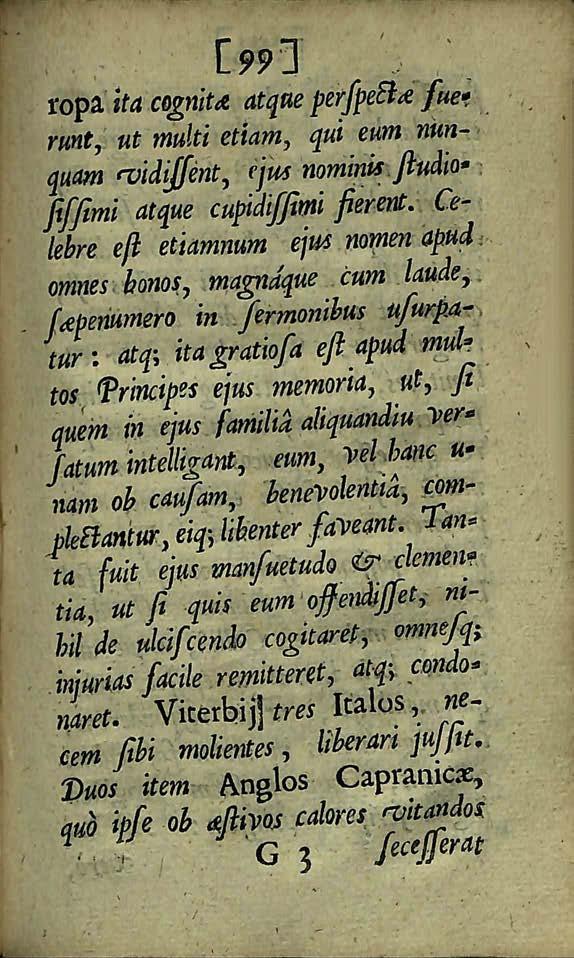 [99]
ropa ita cognitæ atque perſpectæ fue-
runt, ut multi etiam, qui eum nun-
quam vidiſſent, ejus nominis ſtudio-
ſiſſimi atque cupidiſſimi fierent. Ce-
lebre eſt etiamnum ejus nomen apud
omnes bonos, magnáque cum laude,
ſæpenumero in ſermonibus uſurpa-
tur : atq; ita gratioſa eſt apud mul-
tos Principes ejus memoria, ut, ſi
quem in ejus familiâ aliquandiu ver-
ſatum intelligant, eum, vel hanc u-
nam ob cauſam, benevolentiâ, com-
plectantur, eiq; libenter faveant. Tan-
ta fuit ejus manſuetudo & clemen-
tia, ut ſi quis eum offendiſſet, ni-
hil de ulciſcendo cogitaret, omneſq;
injurias facile remitteret, atq; condo-
naret. Viterbij tres Italos, ne-
cem ſibi molientes, liberari juſſit.
Duos item Anglos Capranicæ,
quò ipſe ob æſtivos calores vitandos
G 3 ſeceſſerat